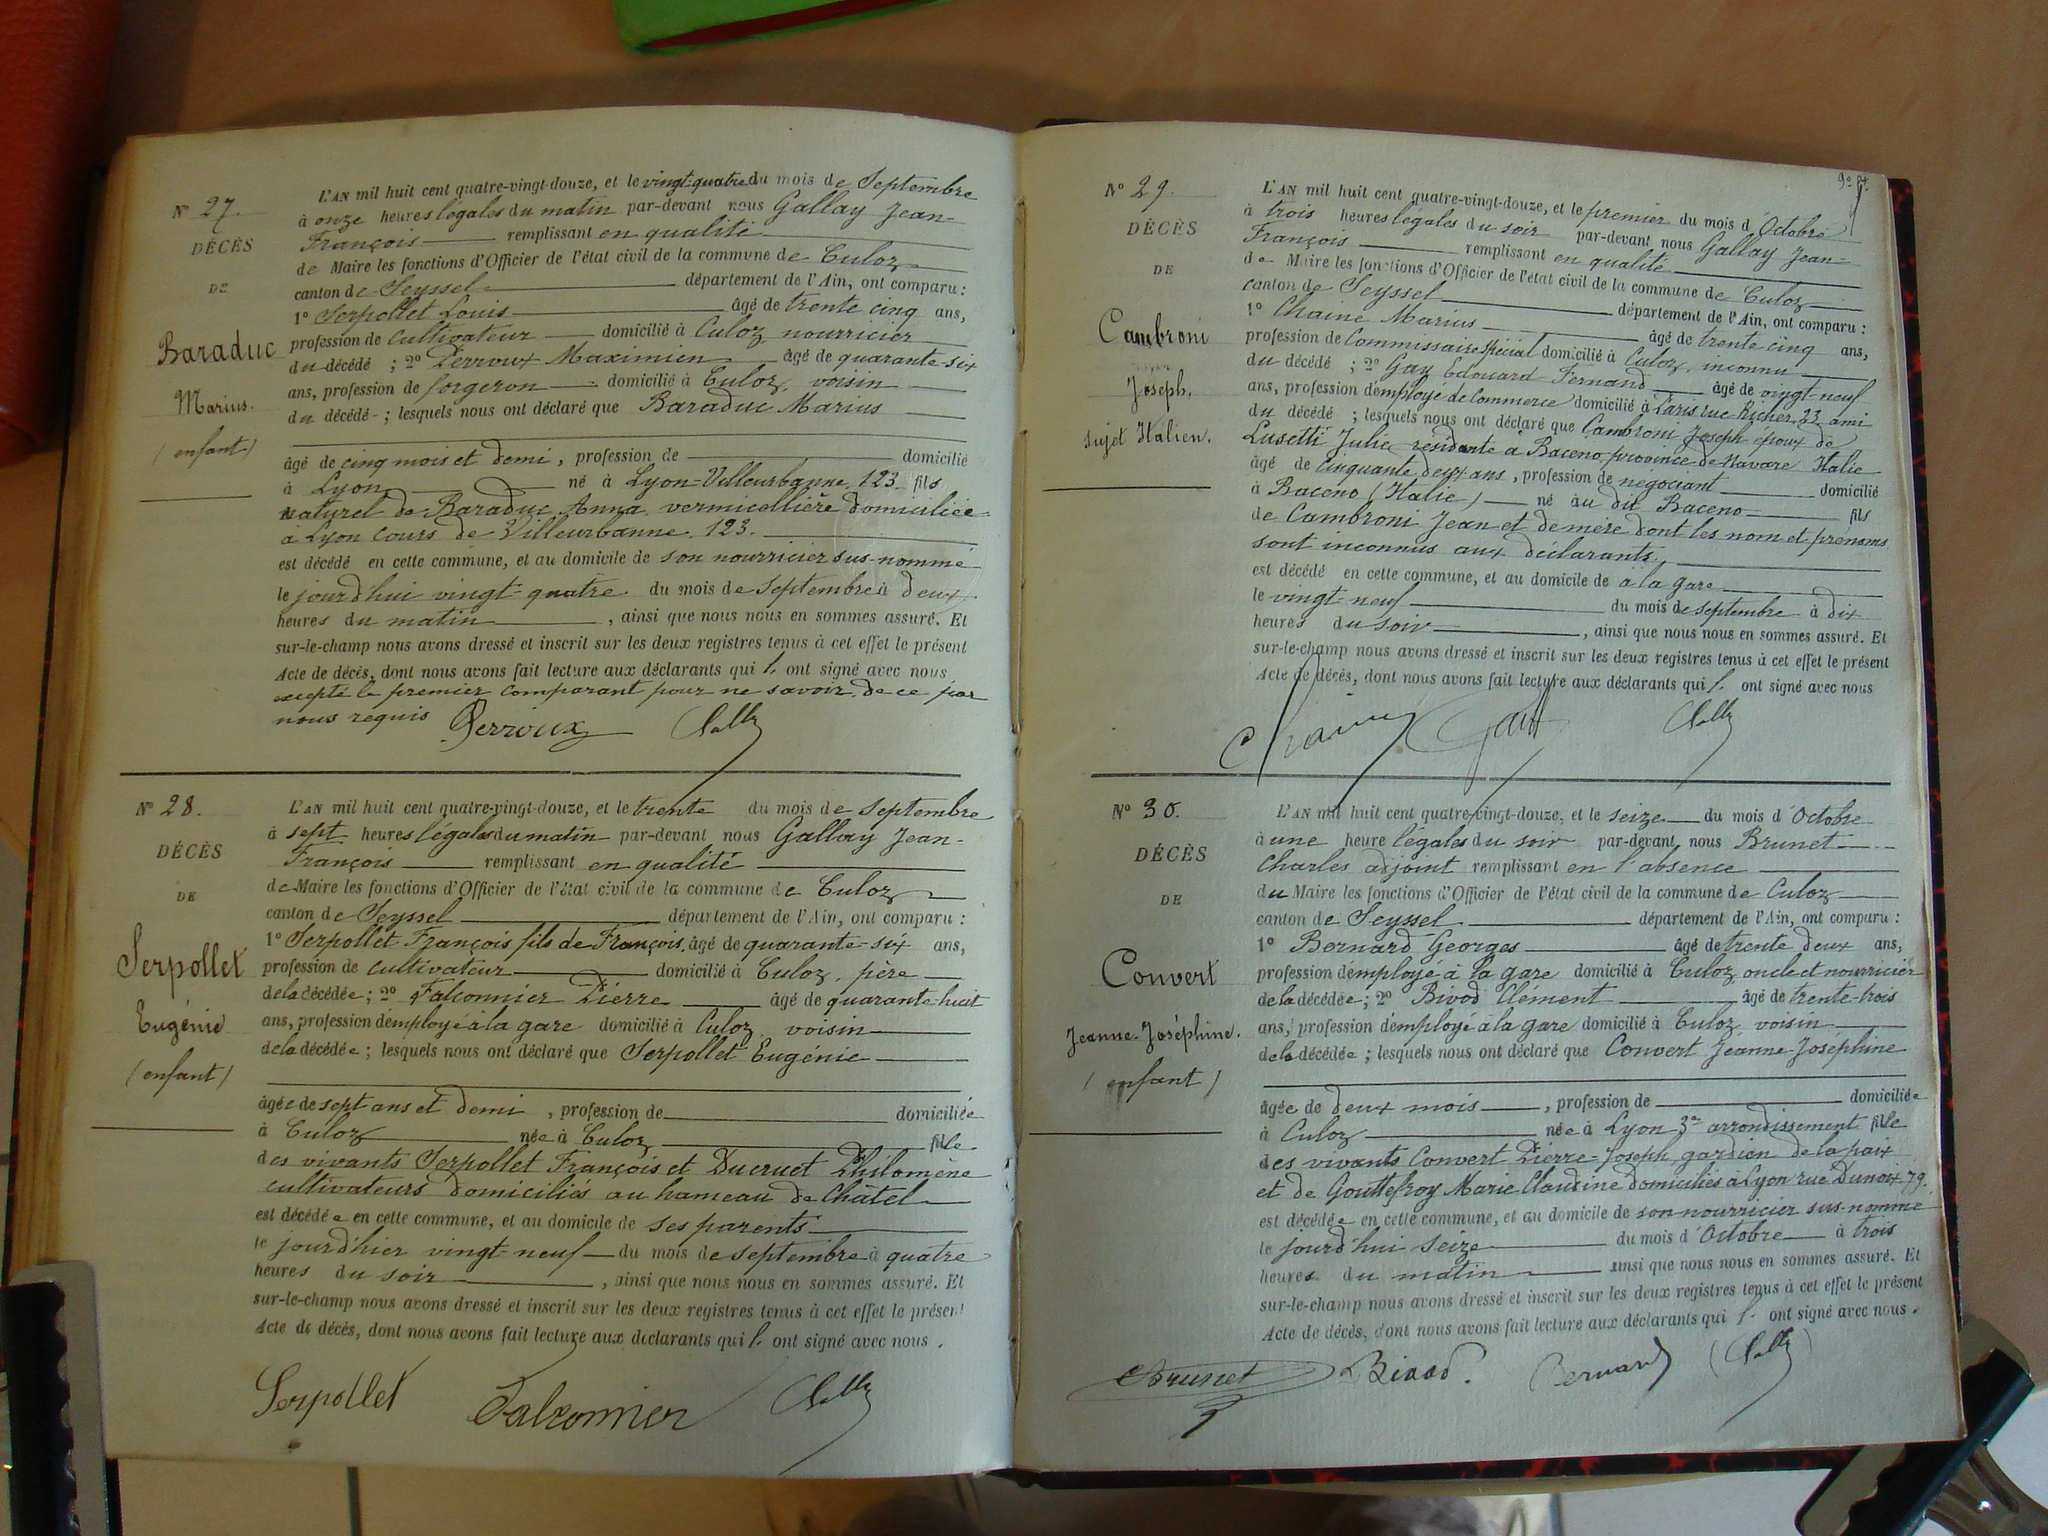 N° 27.
DÉCÈS
DE
Baraduc
Marius.
(enfant)
L'AN mil huit cent quatre-vingt-douze, et le vingt-quatre du mois de Septembre
à onze heures légales du matin par-devant nous Gallay Jean-
François remplissant en qualité
de Maire les fonctions d'Officier de l'état civil de la commune de Culoz
canton de Seyssel département de l'Ain, ont comparu :
1° Serpollet Louis âgé de trente cinq ans,
profession de cultivateur domicilié à Culoz nourricier
du décédé ; 2° Perroux Maximien âgé de quarante-six
ans, profession de forgeron domicilié à Culoz, voisin
du décédé ; lesquels nous ont déclaré que Baraduc Marius
âgé de cinq mois et demi, profession de domicilié
à Lyon né à Lyon-Villeurbanne, 123 fils
naturel de Baraduc Anna vermicellière domiciliée
à Lyon cours de Villeurbanne. 123.
est décédé en cette commune, et au domicile de son nourricier sus-nommé
le jourd'hui vingt-quatre du mois de Septembre à deux
heures du matin, ainsi que nous nous en sommes assuré. Et
sur-le-champ nous avons dressé et inscrit sur les deux registres tenus à cet effet le présent
Acte de décès, dont nous avons fait lecture aux déclarants qui l' ont signé avec nous
excepté le premier comparant pour ne savoir, de ce par
nous requis Perroux
N° 28.
DÉCÈS
DE
Serpollet
Eugénie
(enfant)
L'AN mil huit cent quatre-vingt-douze, et le trente du mois de Septembre
à sept heures légales du matin par-devant nous Gallay Jean-
François remplissant en qualité
de Maire les fonctions d'Officier de l'état civil de la commune de Culoz
canton de Seyssel département de l'Ain, ont comparu :
1° Serpollet François fils de François, âgé de quarante-six ans,
profession de cultivateur domicilié à Culoz, père
de la décédée ; 2° Falconnier Pierre âgé de quarante-huit
ans, profession d'employé à la gare domicilié à Culoz, voisin
de la décédée ; lesquels nous ont déclaré que Serpollet Eugénie
âgée de sept ans et demi, profession de domiciliée
à Culoz née à Culoz fille
des vivants Serpollet François et Ducruet Philomène
cultivateurs domiciliés au hameau de Châtel
est décédée en cette commune, et au domicile de ses parents
le jourd'hier vingt-neuf du mois de septembre à quatre
heures du soir, ainsi que nous nous en sommes assuré. Et
sur-le-champ nous avons dressé et inscrit sur les deux registres tenus à cet effet le présent
Acte de décès, dont nous avons fait lecture aux déclarants qui l' ont signé avec nous.
Serpollet Falconnier
N° 29.
DÉCÈS
DE
Cambroni
Joseph.
sujet Italien.
L'AN mil huit cent quatre-vingt-douze, et le premier du mois d'Octobre
à trois heures légales du soir par-devant nous Gallay Jean-
François remplissant en qualité
de Maire les fonctions d'Officier de l'état civil de la commune de Culoz
canton de Seyssel département de l'Ain, ont comparu :
1° Chaine Marius âgé de trente cinq ans,
profession de Commissaire spécial domicilié à Culoz, inconnu
du décédé ; 2° Gay Edouard Fernand âgé de vingt-neuf
ans, profession d'employé de commerce domicilié à Paris rue Richer, 23 ami
du décédé ; lesquels nous ont déclaré que Cambroni Joseph époux de
Lusetti Julie résidante à Baceno province de Navare Italie
âgé de cinquante deux ans, profession de négociant domicilié
à Baceno (Italie) né au dit Baceno fils
de Cambroni Jean et de mère dont les nom et prénoms
sont inconnus aux déclarants,
est décédé en cette commune, et au domicile de à la gare
le vingt-neuf du mois de septembre à dix
heures du soir, ainsi que nous nous en sommes assuré. Et
sur-le-champ nous avons dressé et inscrit sur les deux registres tenus à cet effet le présent
Acte de décès, dont nous avons fait lecture aux déclarants qui l' ont signé avec nous
N° 30.
DÉCÈS
DE
Convert
Jeanne-Joséphine.
(enfant)
L'AN mil huit cent quatre-vingt-douze, et le seize du mois d'Octobre
à une heure légales du soir par-devant nous Brunet
Charles adjoint remplissant en l'absence
du Maire les fonctions d'Officier de l'état civil de la commune de Culoz
canton de Seyssel département de l'Ain, ont comparu :
1° Bernard Georges âgé de trente deux ans,
profession d'employé à la gare domicilié à Culoz oncle et nourricier
de la décédée ; 2° Bivod Clément âgé de trente-trois
ans, profession d'employé à la gare domicilié à Culoz, voisin
de la décédée ; lesquels nous ont déclaré que Convert Jeanne-Joséphine
âgée de deux mois, profession de domiciliée
à Culoz née à Lyon 3me arrondissement fille
des vivants Convert Pierre-Joseph gardien de la paix
et de Gouttefroy Marie Claudine domiciliés à Lyon rue Dunoix 79.
est décédée en cette commune, et au domicile de son nourricier sus-nommé
le jourd'hui seize du mois d'Octobre à trois
heures du matin ainsi que nous nous en sommes assuré. Et
sur-le-champ nous avons dressé et inscrit sur les deux registres tenus à cet effet le présent
Acte de décès, dont nous avons fait lecture aux déclarants qui l' ont signé avec nous.
Brunet Bivod. Bernard